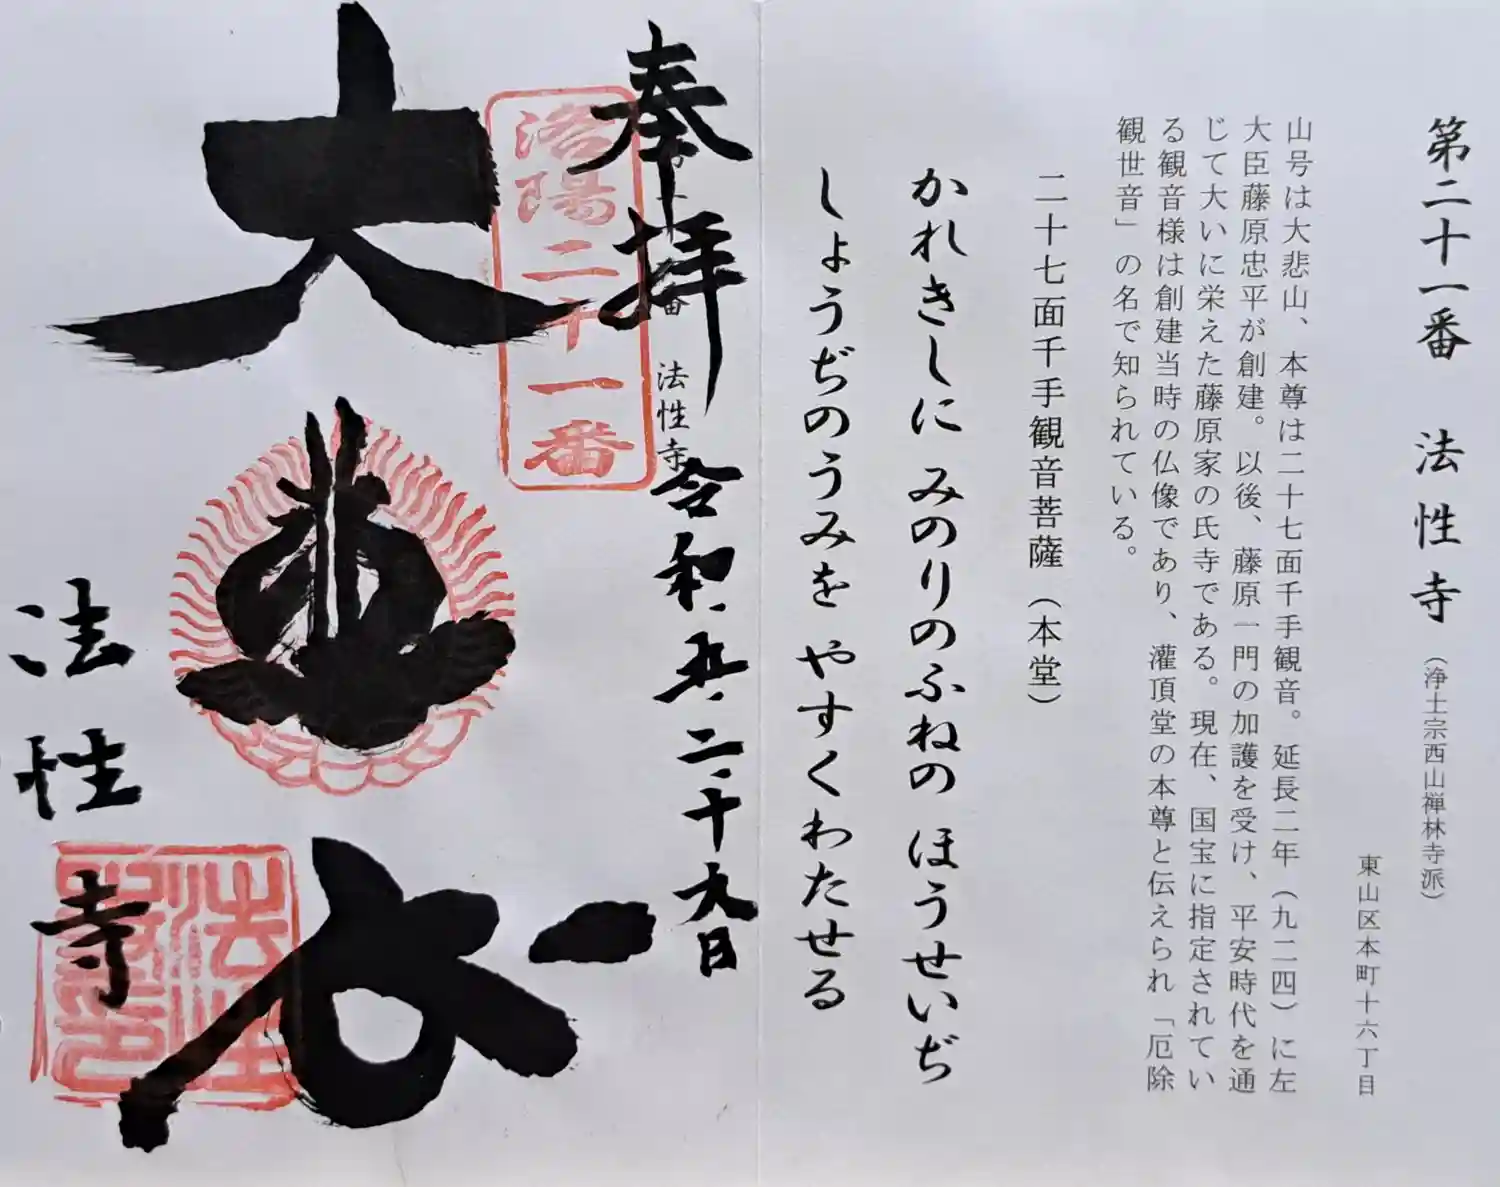 第二十一番 法性寺（浄土宗西山禅林寺派）
東山区本町十六丁目
山号は大悲山、本尊は二十七面千手観音。延長二年（九二四）に左
大臣藤原忠平が創建。以後、藤原一門の加護を受け、平安時代を通
じて大いに栄えた藤原家の氏寺である。現在、国宝に指定されてい
る観音様は創建当時の仏像であり、灌頂堂の本尊と伝えられ「厄除
観世音」の名で知られている。
二十七面千手観音菩薩（本堂）
かれきしに みのりのふねの ほうせいぢ
しょうぢのうみを やすくわたせる
奉拝 令和五年二十九日
法性寺
洛陽二十一番
大悲
法性寺